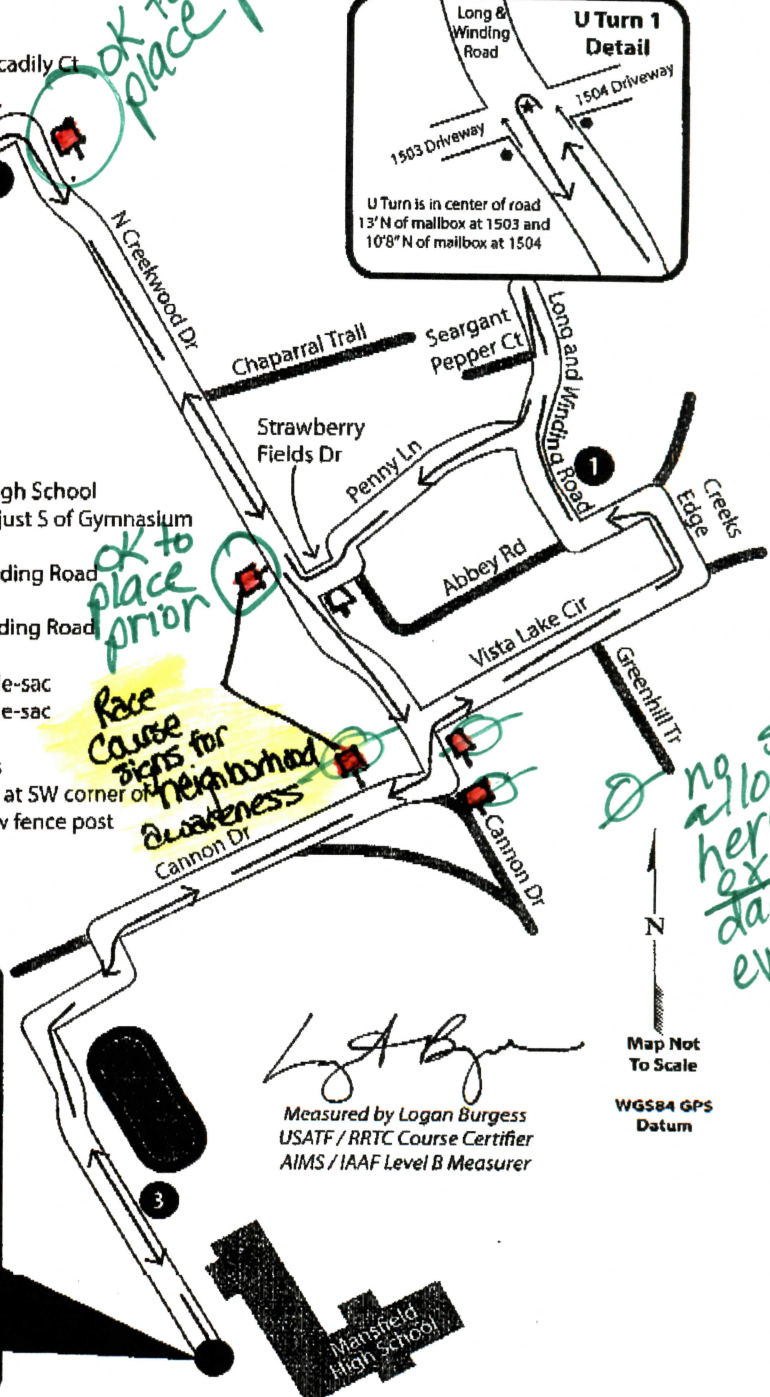 ok to
place
cadily Ct
Long &
Winding
Road
U Turn 1
Detail
1504 Driveway
1503 Driveway
U Turn is in center of road
13' N of mailbox at 1503 and
10'8" N of mailbox at 1504
N Creekwood Dr
Chaparral Trail
Seargant
Pepper Ct
Long and Winding Road
Strawberry
Fields Dr
Penny Ln
1
Creeks
Edge
gh School
just S of Gymnasium
ok to
place
prior
ding Road
ding Road
Abbey Rd
Vista Lake Cir
Greenhill Tr
e-sac
e-sac
Race
Course
signs for
neighborhood
awareness
at SW corner of
w fence post
Cannon Dr
Cannon Dr
no
N
Map Not
To Scale
WGS84 GPS
Datum
Measured by Logan Burgess
USATF / RRTC Course Certifier
AIMS / IAAF Level B Measurer
3
Mansfield
High School